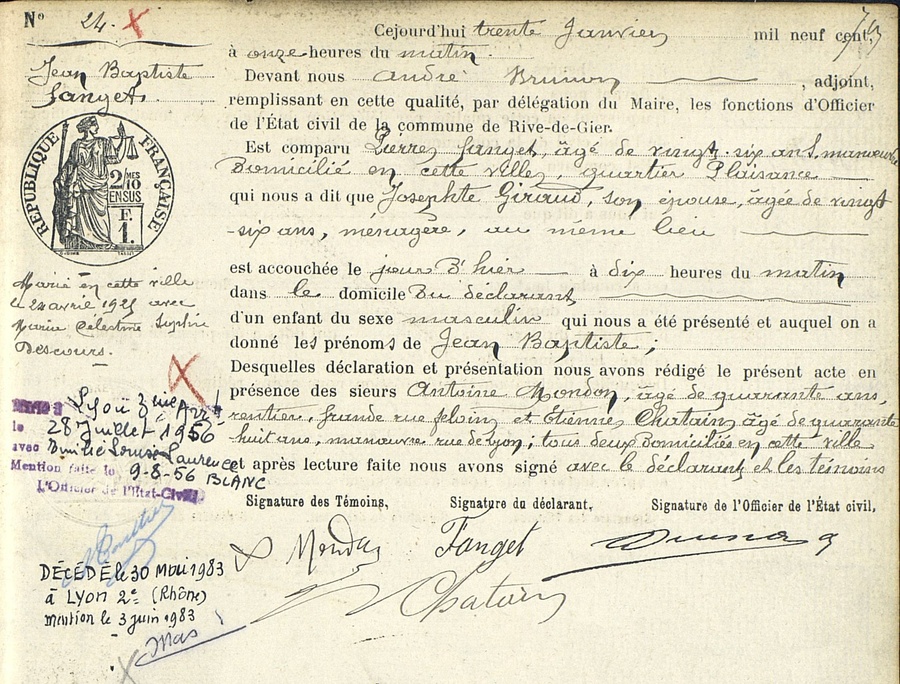 N° 24.
Jean Baptiste
Fanget.
RÉPUBLIQUE FRANÇAISE
2/10 MES
EN SUS
F
1.
Cejourd'hui trente Janvier mil neuf cent
à onze heures du matin.
Devant nous André Brunon, adjoint,
remplissant en cette qualité, par délégation du Maire, les fonctions d'Officier
de l'État civil de la commune de Rive-de-Gier.
Est comparu Pierre Fanget, âgé de vingt six ans, manœuvre
Domicilié en cette ville, quartier Plaisance
qui nous a dit que Josephte Giraud, son épouse, âgée de vingt
-six ans, ménagère, au même lieu
est accouchée le jour d'hier à dix heures du matin
dans le domicile du déclarant
d'un enfant du sexe masculin qui nous a été présenté et auquel on a
donné les prénoms de Jean Baptiste;
Desquelles déclaration et présentation nous avons rédigé le présent acte en
présence des sieurs Antoine Mondon, âgé de quarante ans,
rentier, grande rue feloin et Étienne Chatain âgé de quarante
-huit ans, manœuvre rue de Lyon; tous deux domiciliés en cette ville
et après lecture faite nous avons signé avec le déclarant et les témoins
Signature des Témoins, Signature du déclarant, Signature de l'Officier de l'État civil,
Mondon Fanget Brunon
Chatain
Marié en cette ville
le 24 avril 1925 avec
Marie Célestine Sophie
Descours.
Lyon 3ème Arrt
le 28 Juillet 1956
avec Emilie Louise Laurence
BLANC
Mention faite le 9-8-56
L'Officier de l'Etat-Civil
DÉCÉDÉ le 30 Mai 1983
à LYON 2e (Rhône)
mention le 3 juin 1983
Mas